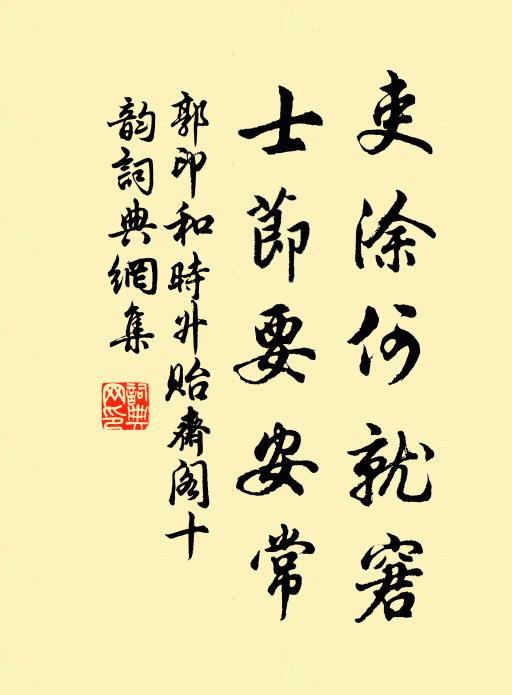 吏涂何就窘
士節要安常
郭印和時升貽齋閣十
韵詞典網集
詞典
网印